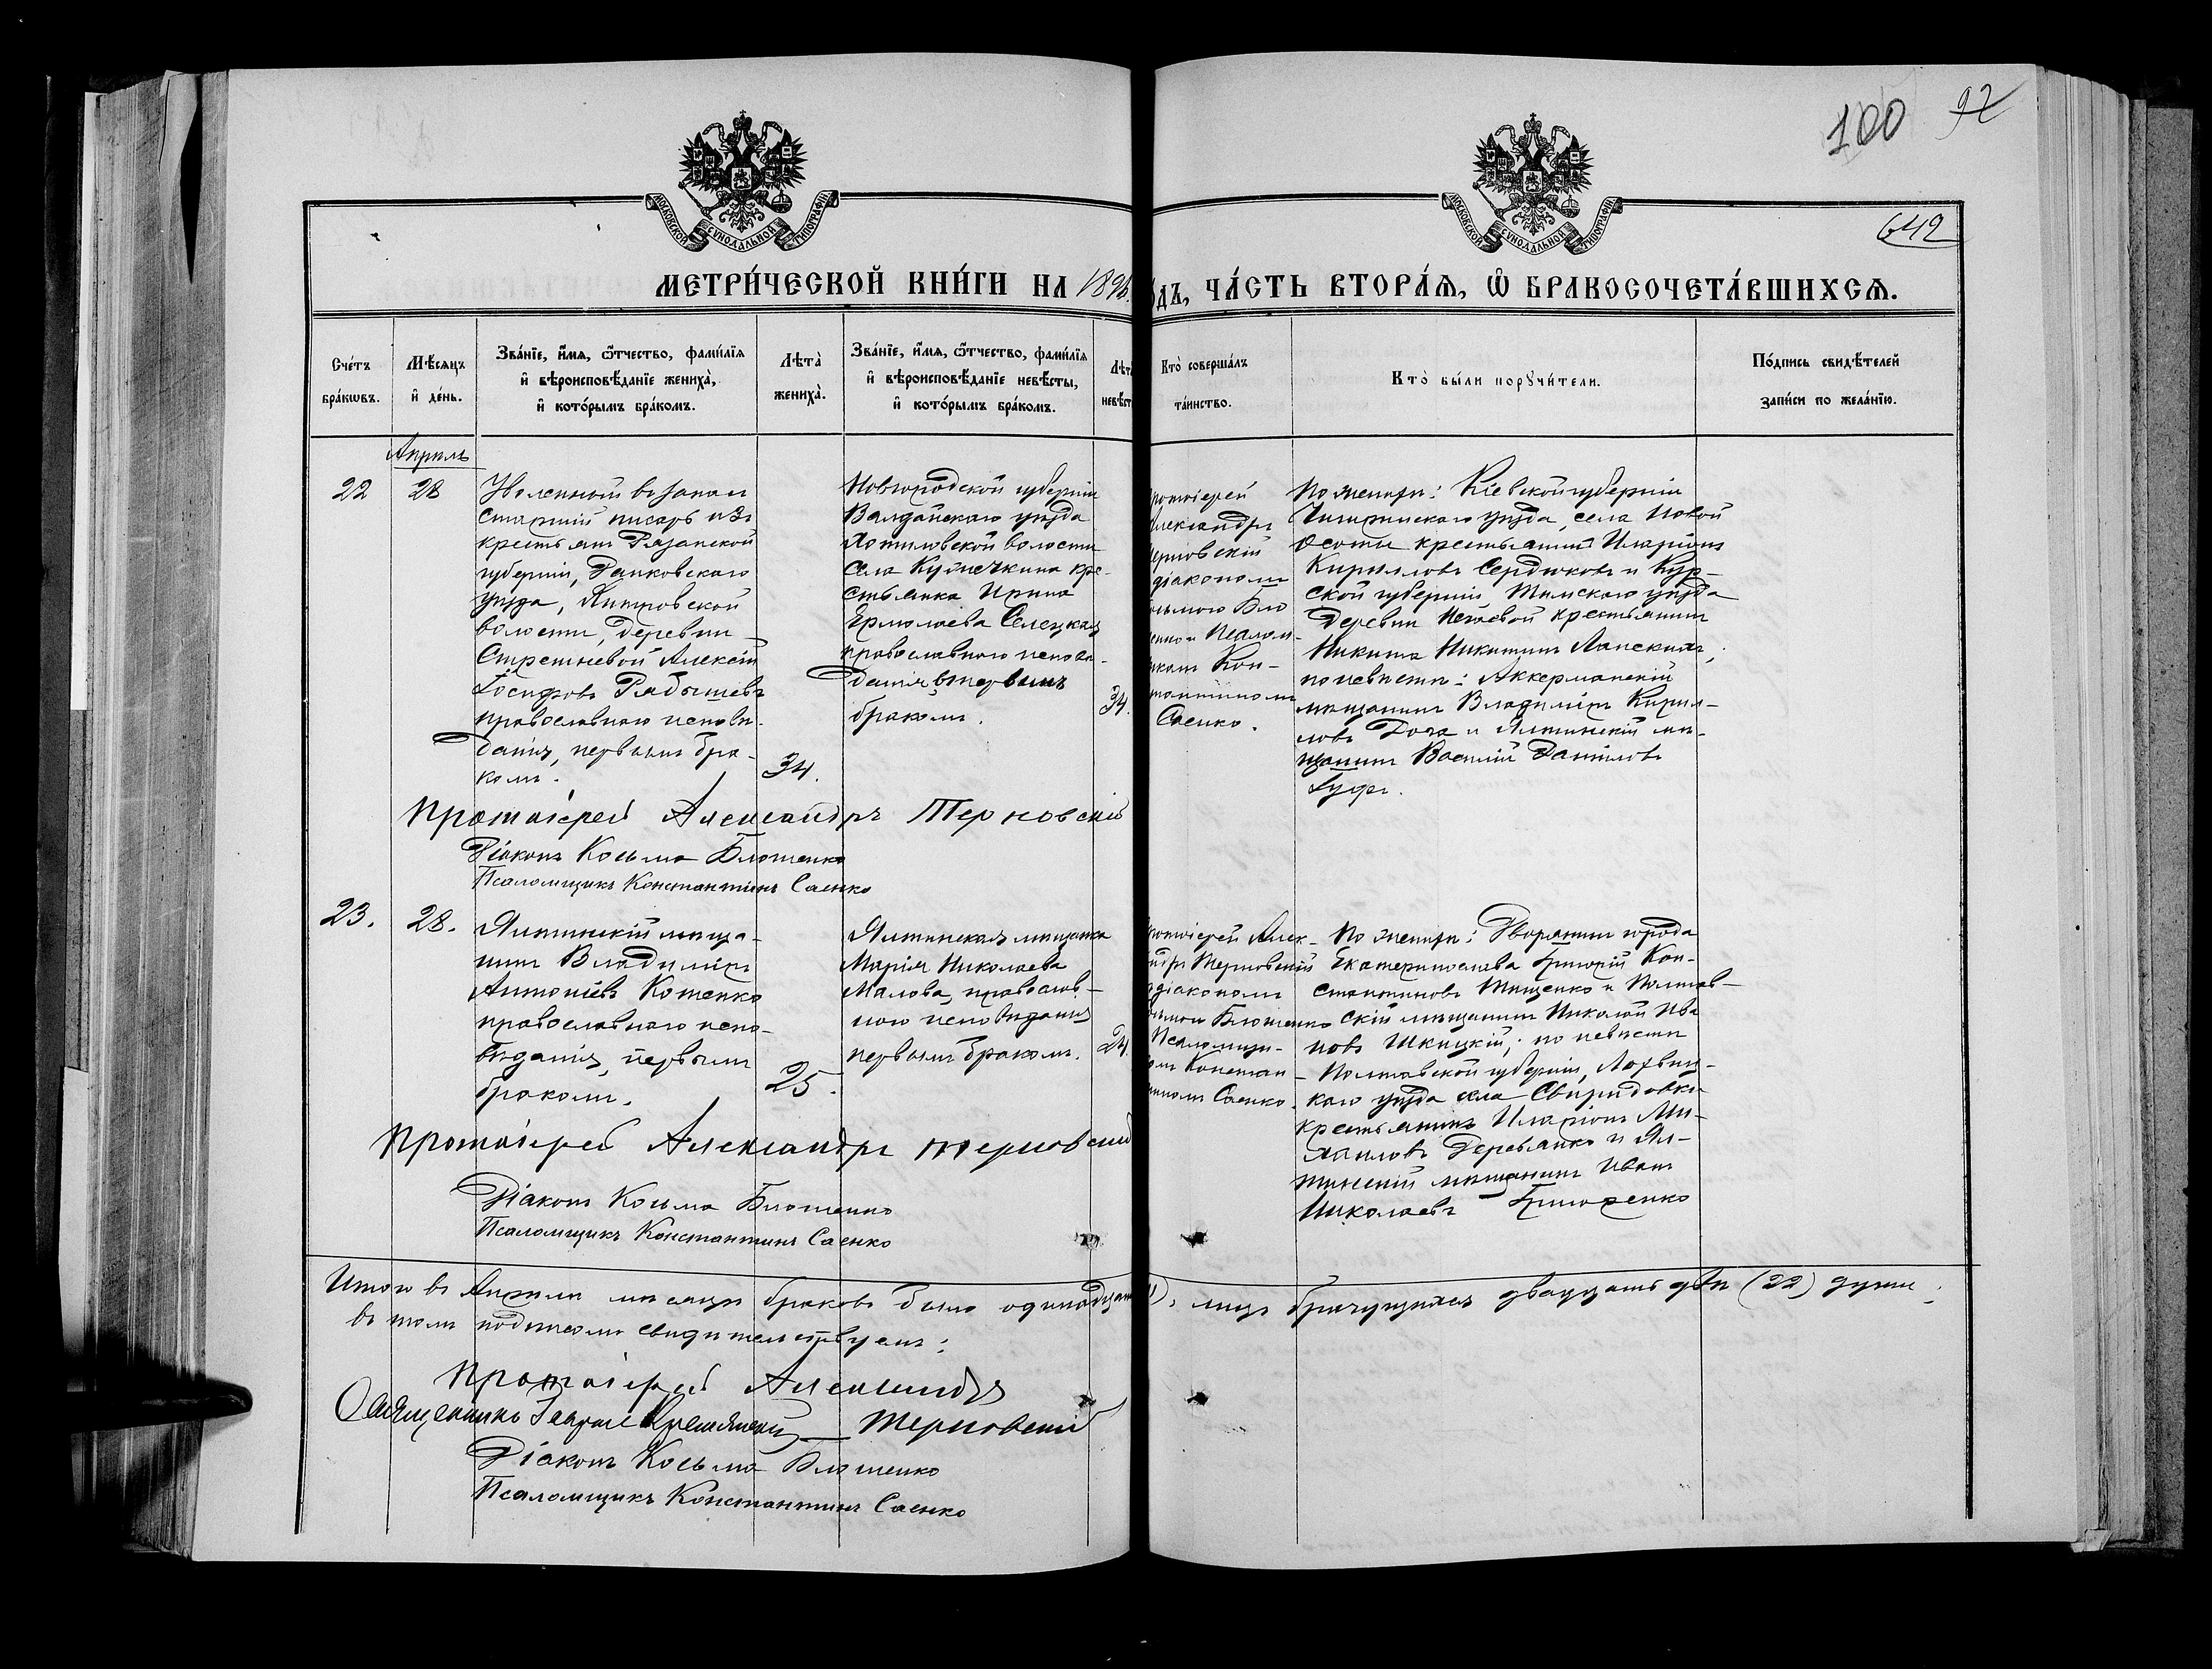 100 92
642
МОСКОВСКОЙ СѴНОДАЛЬНОЙ ТИПОГРАФІИ
МОСКОВСКОЙ СѴНОДАЛЬНОЙ ТИПОГРАФІИ
МЕТРИ́ЧЕСКОЙ КНИ́ГИ НА 1896
ОДЪ, ЧА́СТЬ ВТОРА́Ѧ, Ѽ БРАКОСОЧЕТА́ВШИХСѦ.
Сче́тъ
бра́кѡвъ.
Мѣ́сѧцъ
и҆ де́нь.
Зва́нїе, и҆́мѧ, ѻ҆́тчество, фами́лїѧ
и҆ вѣроисповѣ́данїе жениха̀,
и҆ кото́рымъ бра́комъ.
Лѣта̀
жениха̀.
Зва́нїе, и҆́мѧ, ѻ҆́тчество, фами́лїѧ
и҆ вѣроисповѣ́данїе невѣ́сты,
и҆ кото́рымъ бра́комъ.
Лѣта
невѣст
Кто̀ соверша́лъ
та́инство.
Кто̀ бы́ли порꙋчи́тели.
По́дпись свидѣ́телей
за́писи по жела́нїю.
Апрѣль
22
28
Уволенный въ запасъ
Старшій писарь изъ
крестьянъ Рязанской
губерніи, Данковскаго
уѣзда,
волости, деревни
Стрешневой Алексѣй
Іосифовъ Рябышевъ
православнаго исповѣ-
данія, первымъ бра-
комъ.
34.
Новгородской губерніи
Валдайскаго уѣзда
Хотиловской волости
села Кузнечкина кре-
стьянка Ирина
Ермолаева Селецкая
православнаго исповѣ-
данія, первымъ
бракомъ.
34.
ротоіерей
лександръ
ерновскій
діакономъ
зьмою Блю
енко и Псалом-
икомъ Кон-
тантиномъ
Саенко.
По женихѣ: Кіевской губерніи
Чигиринскаго уѣзда, села Новой
Осоты крестьянинъ Иларіонъ
Кирилловъ Сердюковъ и Кур-
ской губерніи Тимскаго уѣзда
Деревни крестьянинъ
Никита Никитинъ Лапскихъ;
по невѣстѣ: Аккерманскій
мѣщанинъ Владиміръ Кирил-
ловъ Дога и Ялтинскій мѣ-
щанинъ Василій Даниловъ
Гуфъ.
Протоіерей Александръ Терновскій
Діаконъ Козьма Блюшенко
Псаломщикъ Константинъ Саенко
23.
28.
Ялтинскій мѣща-
нинъ Владиміръ
Антоніевъ Котенко
православнаго испо-
вѣданія, первымъ
бракомъ.
25.
Ялтинская мѣщанка
Марія Николаева
Малова, православ-
наго исповѣданія
первымъ бракомъ.
24.
ротоіерей Алек-
ндръ Терновскій
діакономъ
зьмою Блюшенко
Псаломщи-
омъ Констан-
тиномъ Саенко.
По женихѣ: Дворянинъ города
Екатеринослава Григорій Кон-
стантиновъ Тищенко и Полтав-
скій мѣщанинъ Николай Ива
новъ Шкицкій; по невѣстѣ
Полтавской губерніи, Лохвиц-
каго уѣзда села Свиридовки
крестьянинъ Иларіонъ Ми-
хайловъ Деревянко и Ял-
тинскій мѣщанинъ Иванъ
Николаевъ Григоренко
Протоіерей Александръ Терновскій
Діаконъ Козьма Блюшенко
Псаломщикъ Константинъ Саенко
Итого въ Апрѣлѣ мѣсяцѣ браковъ было одинадцать 11), лицъ брачущихся двадцать двѣ (22) души;
въ томъ подписомъ свидѣтельствуемъ:
Протоіерей Александръ
Терновскій
Священникъ
Діаконъ Козьма Блюшенко
Псаломщикъ Константинъ Саенко